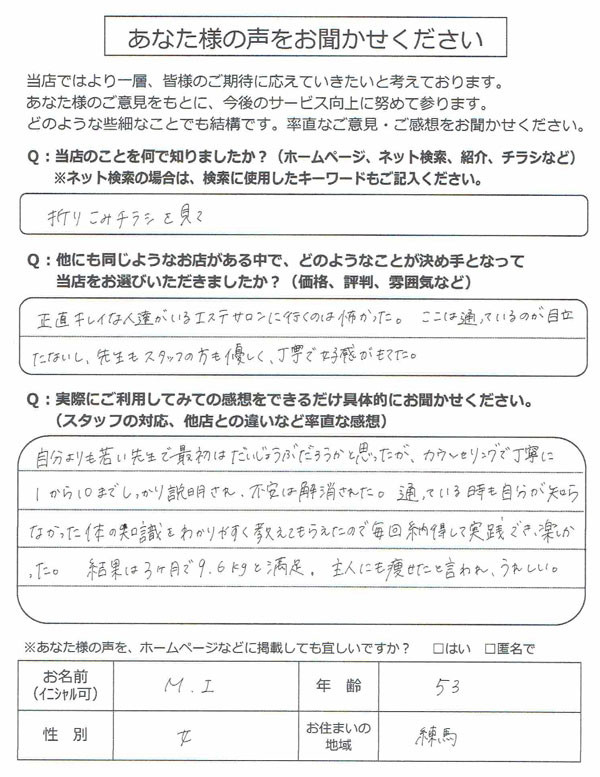 あなた様の声をお聞かせください
当店ではより一層、皆様のご期待に応えていきたいと考えております。
あなた様のご意見をもとに、今後のサービス向上に努めて参ります。
どのような些細なことでも結構です。率直なご意見・ご感想をお聞かせください。
Q：当店のことを何で知りましたか？（ホームページ、ネット検索、紹介、チラシなど）
※ネット検索の場合は、検索に使用したキーワードもご記入ください。
折りこみチラシを見て
Q：他にも同じようなお店がある中で、どのようなことが決め手となって
当店をお選びいただきましたか？（価格、評判、雰囲気など）
正直キレイな人達がいるエステサロンに行くのは怖かった。ここは通っているのが目立
たないし、先生もスタッフの方も優しく、丁寧で好感がもてた。
Q：実際にご利用してみての感想をできるだけ具体的にお聞かせください。
（スタッフの対応、他店との違いなど率直な感想）
自分よりも若い先生で最初はだいじょうぶだろうかと思ったが、カウンセリングで丁寧に
1から10までしっかり説明され、不安は解消された。通っている時も自分が知ら
なかった体の知識をわかりやすく教えてもらえたので毎回納得して実践でき、楽しか
った。結果は3ヶ月で9.6kgと満足。主人にも痩せたと言われ、うれしい。
※あなた様の声を、ホームページなどに掲載しても宜しいですか？ □はい □匿名で
お名前 M.I 年齢 53
（イニシャル可）
性別 女 お住まいの 練馬
地域